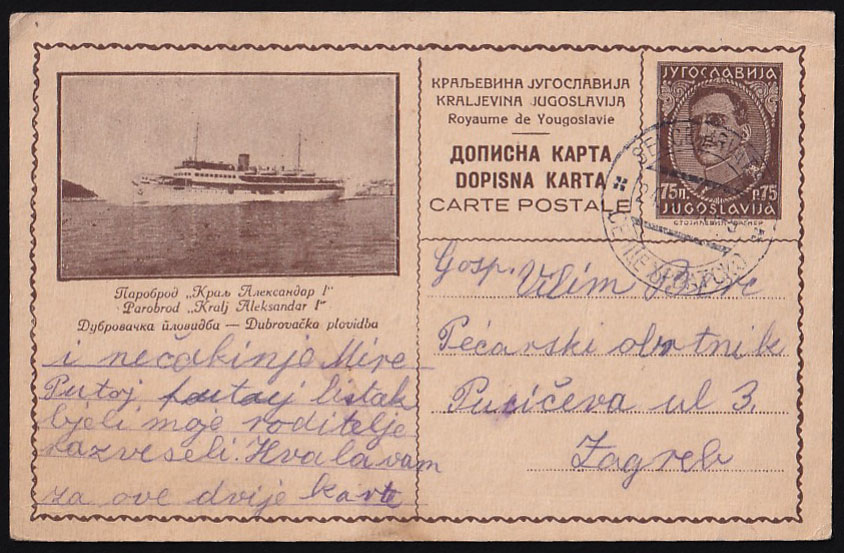 КРАЉЕВИНА ЈУГОСЛАВИЈА
KRALJEVINA JUGOSLAVIJA
Royaume de Yougoslavie
ДОПИСНА КАРТА
DOPISNA KARTA
CARTE POSTALE
ЈУГОСЛАВИЈА
75п. p.75
JUGOSLAVIJA
Пароброд „Краљ Александар I“
Parobrod „Kralj Aleksandar I“
Дубровачка пловидба — Dubrovačka plovidba
i nečakinje Mire
Putoj listak
moje roditelje
razveseli. Hvala vam
za ove dvije karte
Gosp. Vilim
Pećarski obrtnik
ul 3.
Zagreb